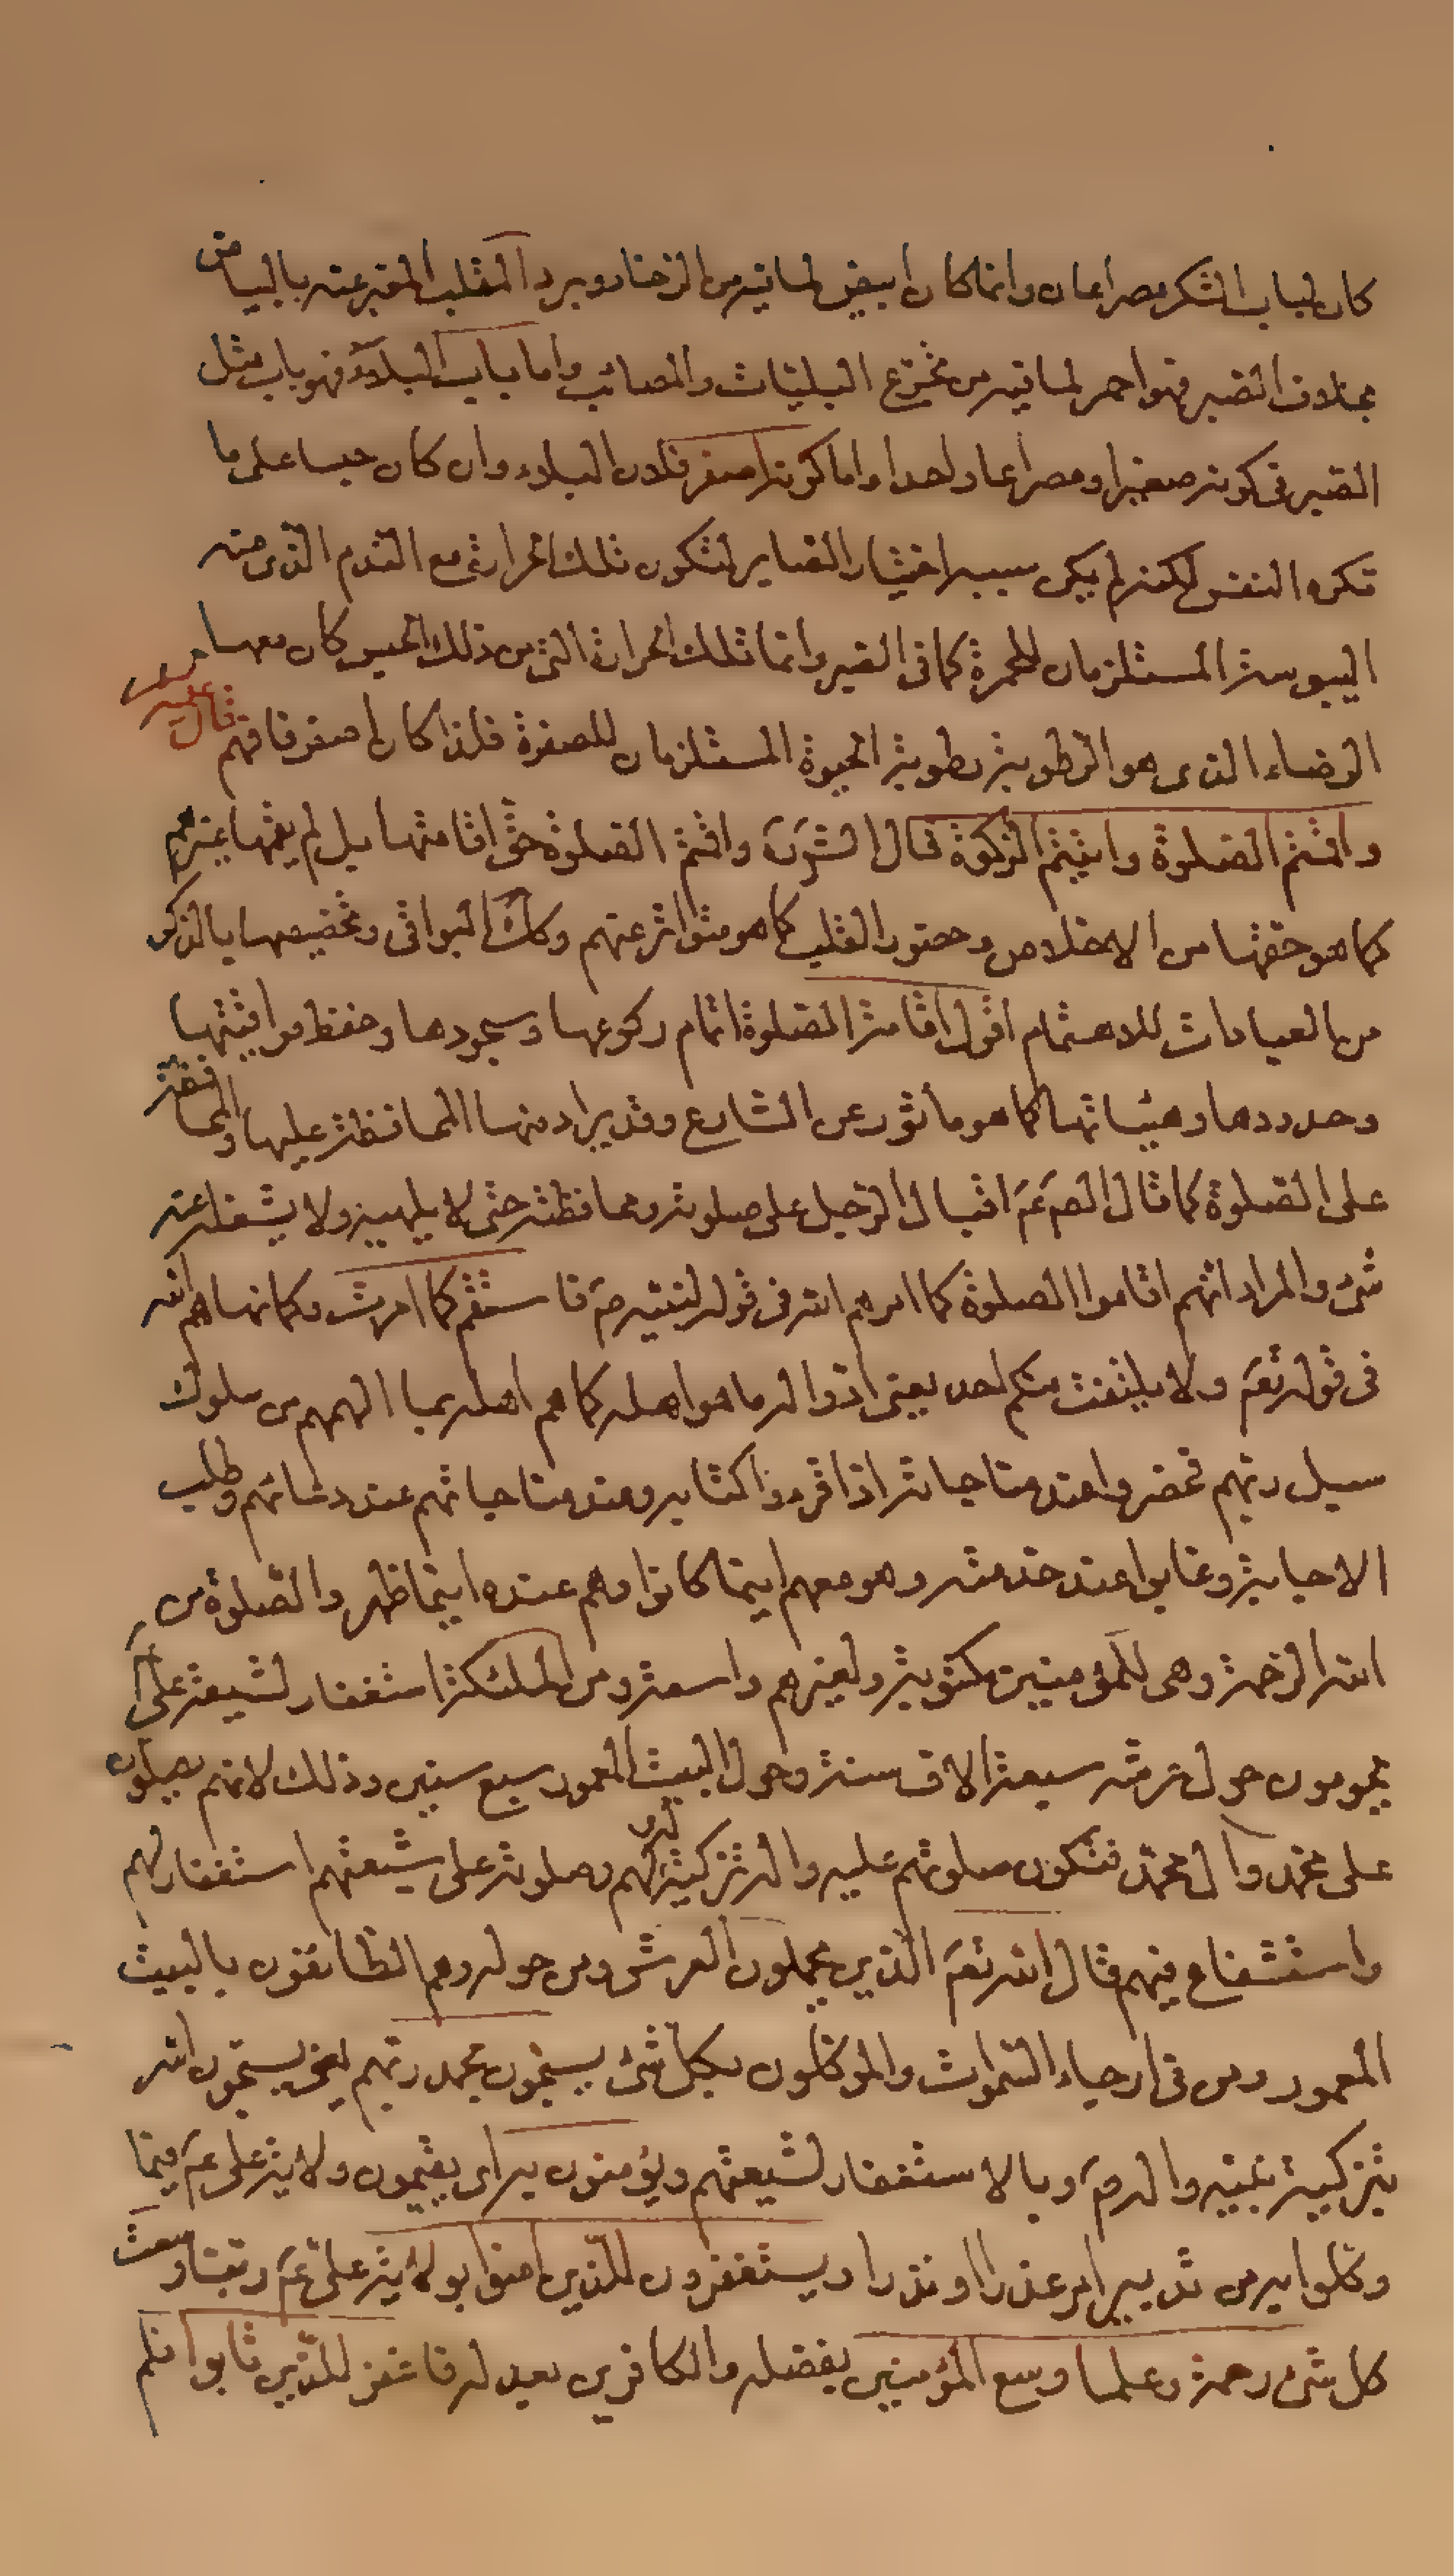 كان لباب الشكر مصراعان وانما كان ابيض لما فيه من الرضا وبرد القلب المعبر عنه بالبياض
بخلاف الصبر فهو احمر لما فيه من تجرّع البليّات والمصائب واما باب البلاء فهو باب مثل
الصبر في كونه صغيرا ومصراعا واحدا واما كونه اصفر فلان البلاء وان كان حبسا على ما
تكره النفس لكنه لم يكن سببه اختيار الصابر لتكون تلك الحرارة مع التقدم الذي منه
اليبوسة المستلزمان للحمرة كما في الصبر وانما تلك الحرارة التي من ذلك الحبس كان معها
الرضاء الذي هو الرطوبة رطوبة الحيوة المستلزمان للصفرة فلذا كان اصفر فافهم قال عليه السلام
واقمتم الصلوة واتيتم الزكوة قال الشرح واقمتم الصلوة حق اقامتها بل لم يقمها غيرهم
كما هو حقها من الاخلاص وحضور القلب كما هو متواتر عنهم وكك البواقي وتخصيصها بالذكر
من العبادات للاهتمام اقول اقامة الصلوة اتمام ركوعها وسجودها وحفظ مواقيتها
وحدودها وهيئاتها كما هو مأثور عن الشارع وقد يراد منها المحافظة عليها والمحافظة
على الصلوة كما قال الصم عم اقبال الرجل على صلوته ومحافظته حتى لا يلهيه ولا يشغله عنه
شئ والمراد انهم اقاموا الصلوة كما امرهم الله في قوله لنبيه ص فاستقم كما امرت وكما نهاهم الله
في قوله تعم ولا يلتفت منكم احد يعني ادّوا له ما هو اهله كما هم اهله بما الهمهم من سلوك
سبيل ربهم فحضروا عند مناجاته اذا قرءوا كتابه وعند مناجاتهم عند دعائهم وطلب
الاجابة وغابوا عند خدمته وهو معهم اينما كانوا وهم عنده اينما ظهر والصلوة من
الله الرحمة وهي للمؤمنين مكتوبة ولغيرهم واسعة ومن الملئكة استغفار لشيعة علي
يحومون حول عرشه سبعة الاف سنة وحول البيت المعمور سبع سنين وذلك لانهم يصلون
على محمد وآل محمد فتكون صلوتهم عليه وآله تزكية لهم وصلوته على شيعتهم استغفار لهم
واستشفاع فيهم قال الله تعم الذين يحملون العرش ومن حوله وهم الطائفون بالبيت
المعمور ومن في ارجاء السموات والموكلون بكل شئ يسبحون بحمد ربهم يعني يسبحون الله
بتزكية نبيه وآله ص وبالاستغفار لشيعتهم ويؤمنون به اى يقيمون ولاية علي عم فيما
وكلوا به من تدبير امر عذرا او نذرا ويستغفرون للذين امنوا بولاية علي عم ربنا وسعت
كل شئ رحمة وعلما وسع المؤمنين بفضله والكافرين بعدله فاغفر للذين تابوا فلم